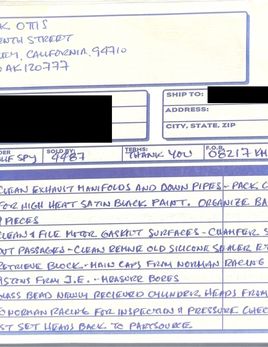 K OTIS
ENTH STREET
EY, CALIFORNIA, 94710
AK120777
SHIP TO:
ADDRESS:
CITY, STATE, ZIP
DER
SOLD BY:
TERMS:
F.O.B.
SPY
4487
THANK YOU
08217 KH
CLEAN EXHAUST MANIFOLDS AND DOWN PIPES - PACK
FOR HIGH HEAT SATIN BLACK PAINT. ORGANIZE BA
PIECES
CLEAN & FILE MOTOR GASKET SURFACES - CHAMFER S
OUT PASSAGES - CLEAN OLD SILICONE SEALER
RETRIEVE BLOCK - MAIN CAPS FROM NORMAN RACING
ISTONS FROM J.E. - MEASURE BORES
LASS BEAD NEWLY RECIEVED CYLINDER HEADS FROM
NORMAN RACING FOR INSPECTION & PRESSURE CHEC
ST SET HEADS BACK TO PARTSOURCE